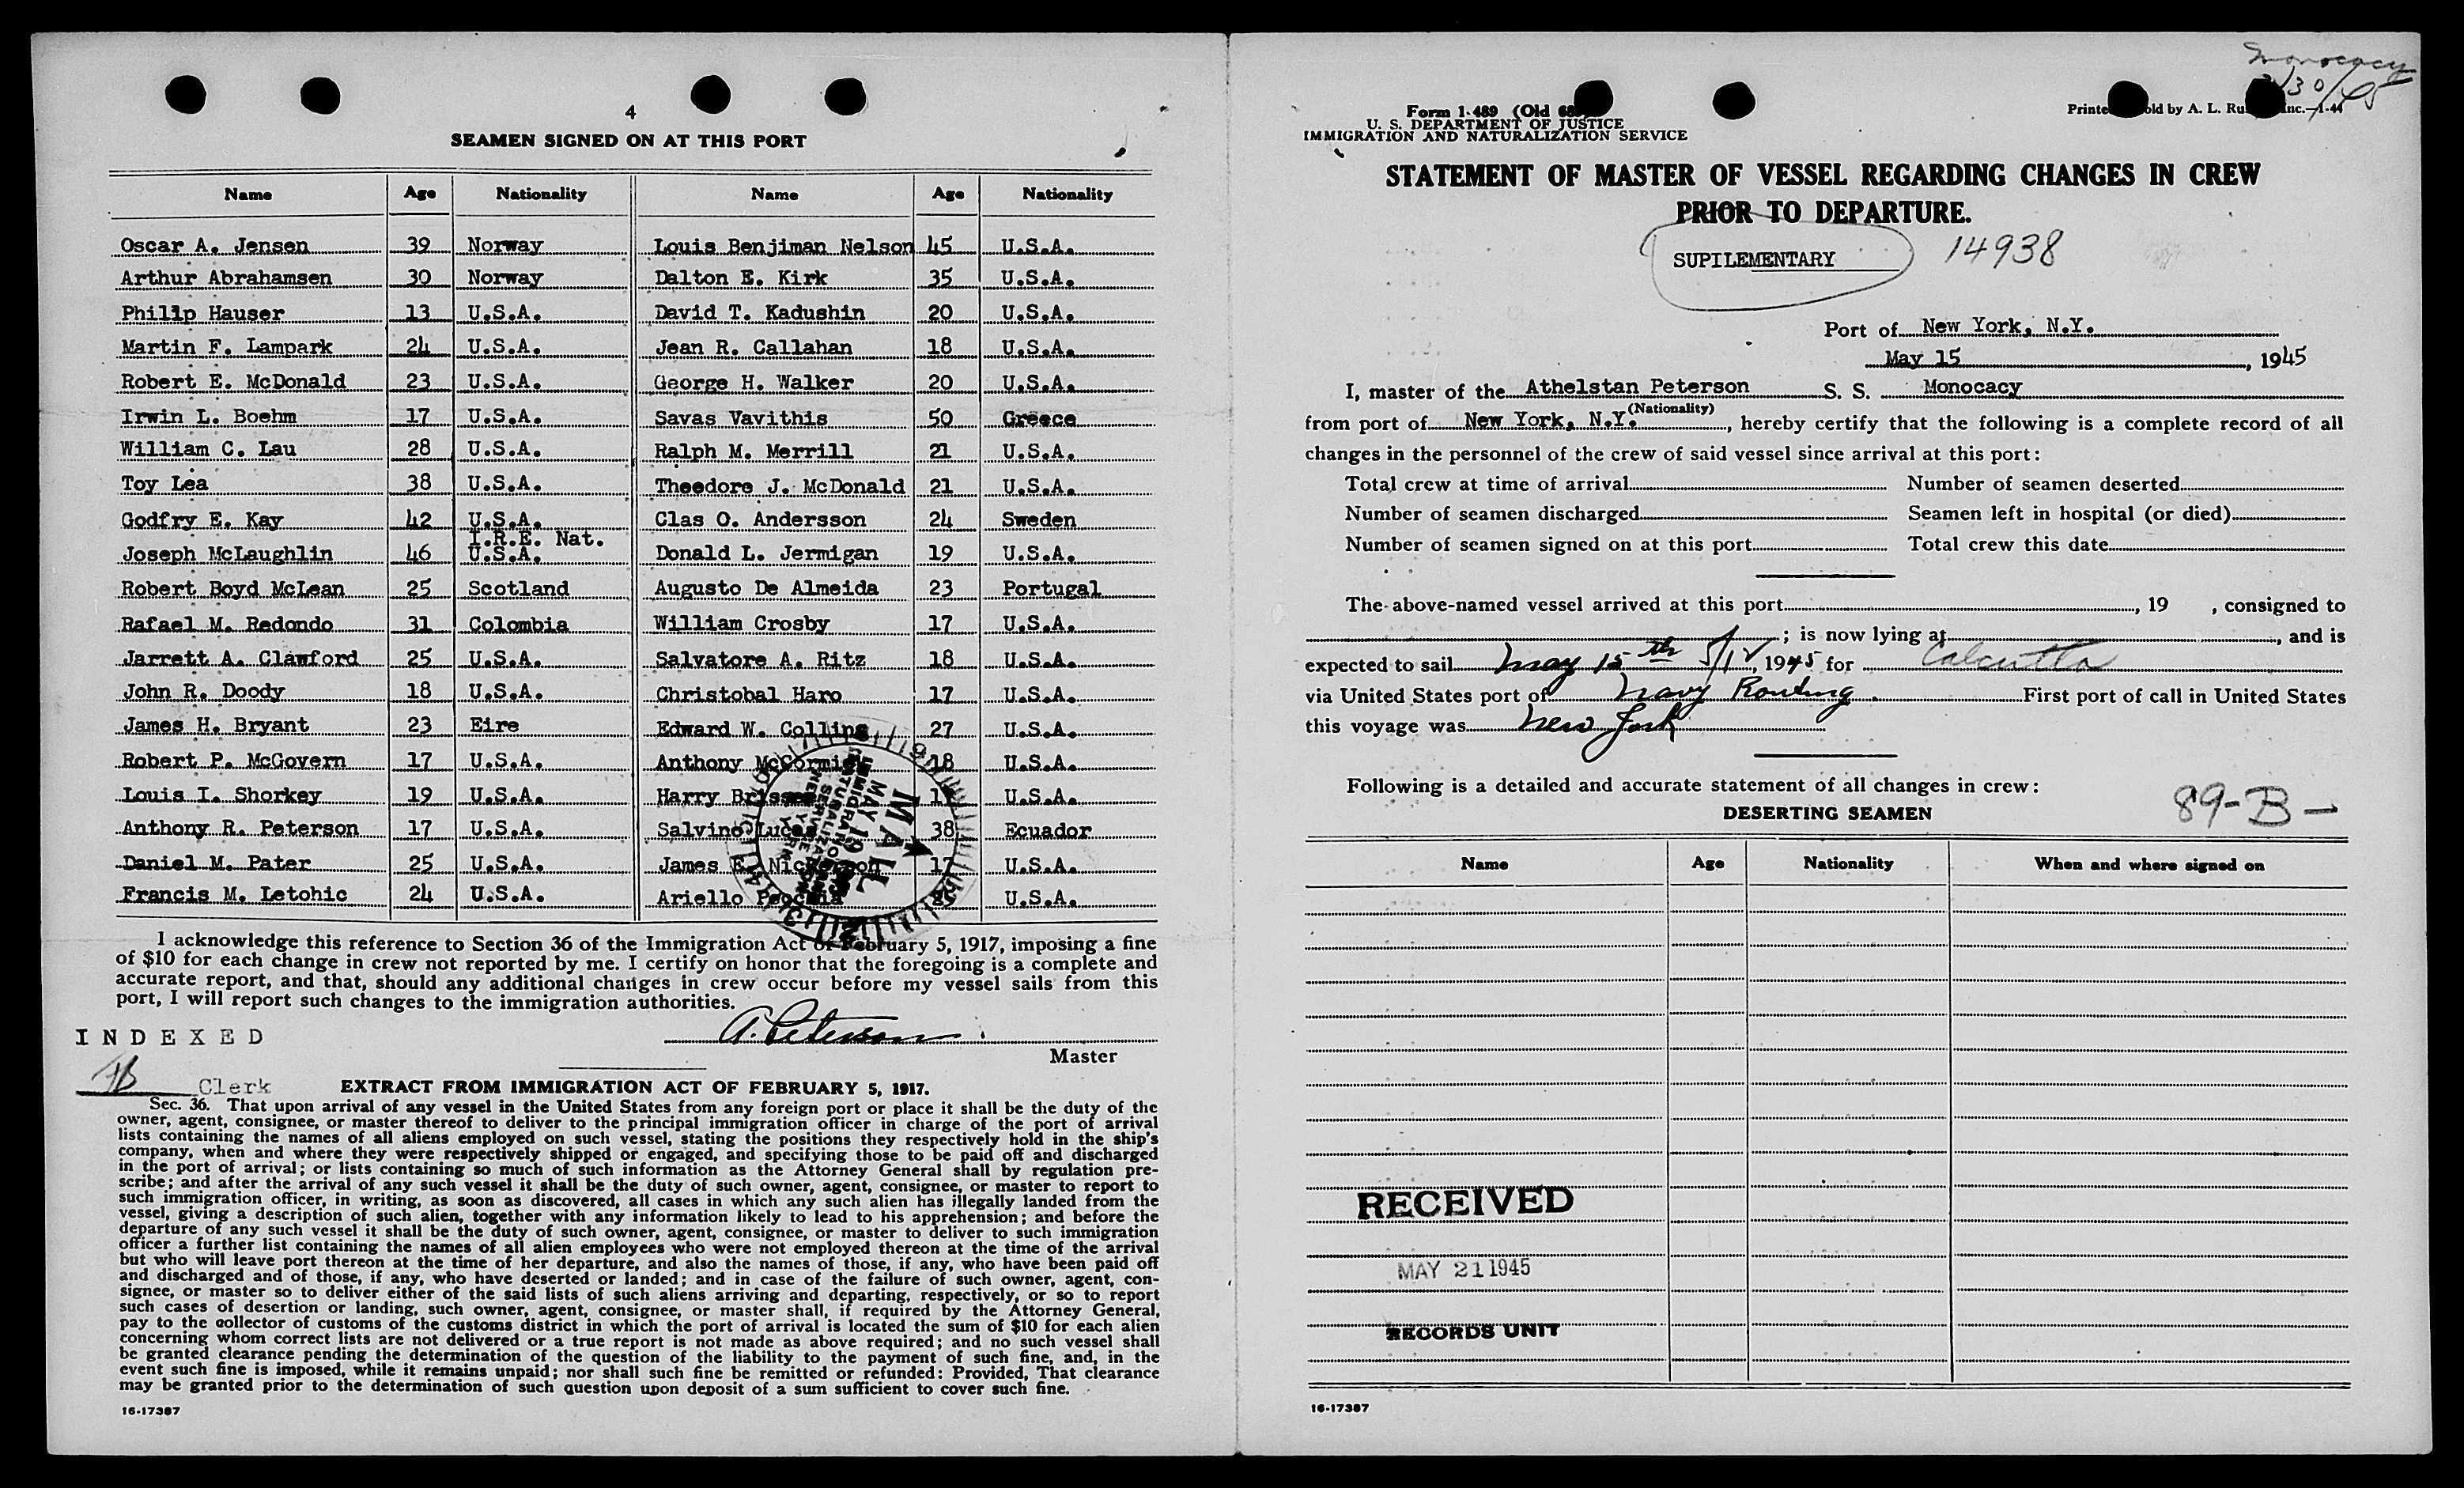 4
SEAMEN SIGNED ON AT THIS PORT
Name Age Nationality Name Age Nationality
Oscar A. Jensen 39 Norway Louis Benjiman Nelson 45 U.S.A.
Arthur Abrahamsen 30 Norway Dalton E. Kirk 35 U.S.A.
Philip Hauser 13 U.S.A. David T. Kadushin 20 U.S.A.
Martin F. Lampark 24 U.S.A. Jean R. Callahan 18 U.S.A.
Robert E. McDonald 23 U.S.A. George H. Walker 20 U.S.A.
Irwin L. Boehm 17 U.S.A. Savas Vavithis 50 Greece
William C. Lau 28 U.S.A. Ralph M. Merrill 21 U.S.A.
Toy Lea 38 U.S.A. Theodore J. McDonald 21 U.S.A.
Godfry E. Kay 42 U.S.A. Clas O. Andersson 24 Sweden
I.R.E. Nat.
Joseph McLaughlin 46 U.S.A. Donald L. Jermigan 19 U.S.A.
Robert Boyd McLean 25 Scotland Augusto De Almeida 23 Portugal
Rafael M. Redondo 31 Colombia William Crosby 17 U.S.A.
Jarrett A. Clawford 25 U.S.A. Salvatore A. Ritz 18 U.S.A.
John R. Doody 18 U.S.A. Christobal Haro 17 U.S.A.
James H. Bryant 23 Eire Edward W. Collins 27 U.S.A.
Robert P. McGovern 17 U.S.A. Anthony 18 U.S.A.
Louis I. Shorkey 19 U.S.A. Harry U.S.A.
Anthony R. Peterson 17 U.S.A. Salvino 38 Ecuador
Daniel M. Pater 25 U.S.A. James E. 17 U.S.A.
Francis M. Letohic 24 U.S.A. Ariello U.S.A.
MAIL
MAY 19
IMMIGRATION
NATURALIZATION
SERVICE
NEW YORK
I acknowledge this reference to Section 36 of the Immigration Act of February 5, 1917, imposing a fine
of $10 for each change in crew not reported by me. I certify on honor that the foregoing is a complete and
accurate report, and that, should any additional changes in crew occur before my vessel sails from this
port, I will report such changes to the immigration authorities.
A. Peterson
Master
INDEXED
Clerk
EXTRACT FROM IMMIGRATION ACT OF FEBRUARY 5, 1917.
Sec. 36. That upon arrival of any vessel in the United States from any foreign port or place it shall be the duty of the
owner, agent, consignee, or master thereof to deliver to the principal immigration officer in charge of the port of arrival
lists containing the names of all aliens employed on such vessel, stating the positions they respectively hold in the ship's
company, when and where they were respectively shipped or engaged, and specifying those to be paid off and discharged
in the port of arrival; or lists containing so much of such information as the Attorney General shall by regulation pre-
scribe; and after the arrival of any such vessel it shall be the duty of such owner, agent, consignee, or master to report to
such immigration officer, in writing, as soon as discovered, all cases in which any such alien has illegally landed from the
vessel, giving a description of such alien, together with any information likely to lead to his apprehension; and before the
departure of any such vessel it shall be the duty of such owner, agent, consignee, or master to deliver to such immigration
officer a further list containing the names of all alien employees who were not employed thereon at the time of the arrival
but who will leave port thereon at the time of her departure, and also the names of those, if any, who have been paid off
and discharged and of those, if any, who have deserted or landed; and in case of the failure of such owner, agent, con-
signee, or master so to deliver either of the said lists of such aliens arriving and departing, respectively, or so to report
such cases of desertion or landing, such owner, agent, consignee, or master shall, if required by the Attorney General,
pay to the collector of customs of the customs district in which the port of arrival is located the sum of $10 for each alien
concerning whom correct lists are not delivered or a true report is not made as above required; and no such vessel shall
be granted clearance pending the determination of the question of the liability to the payment of such fine, and, in the
event such fine is imposed, while it remains unpaid; nor shall such fine be remitted or refunded: Provided, That clearance
may be granted prior to the determination of such question upon deposit of a sum sufficient to cover such fine.
16-17387
Monocacy
Form 1-489 (Old
U. S. DEPARTMENT OF JUSTICE
IMMIGRATION AND NATURALIZATION SERVICE
by A. L. 1-44
STATEMENT OF MASTER OF VESSEL REGARDING CHANGES IN CREW
PRIOR TO DEPARTURE.
SUPILEMENTARY 14938
Port of New York, N.Y.
May 15, 1945
I, master of the Athelstan Peterson S. S. Monocacy
(Nationality)
from port of New York, N.Y., hereby certify that the following is a complete record of all
changes in the personnel of the crew of said vessel since arrival at this port:
Total crew at time of arrival Number of seamen deserted
Number of seamen discharged Seamen left in hospital (or died)
Number of seamen signed on at this port Total crew this date
The above-named vessel arrived at this port, 19 , consigned to
; is now lying at, and is
expected to sail May 15th, 1945 for Calcutta
via United States port of Navy Routing. First port of call in United States
this voyage was New York
Following is a detailed and accurate statement of all changes in crew:
89-B-
DESERTING SEAMEN
Name Age Nationality When and where signed on
RECEIVED
MAY 21 1945
RECORDS UNIT
16-17387